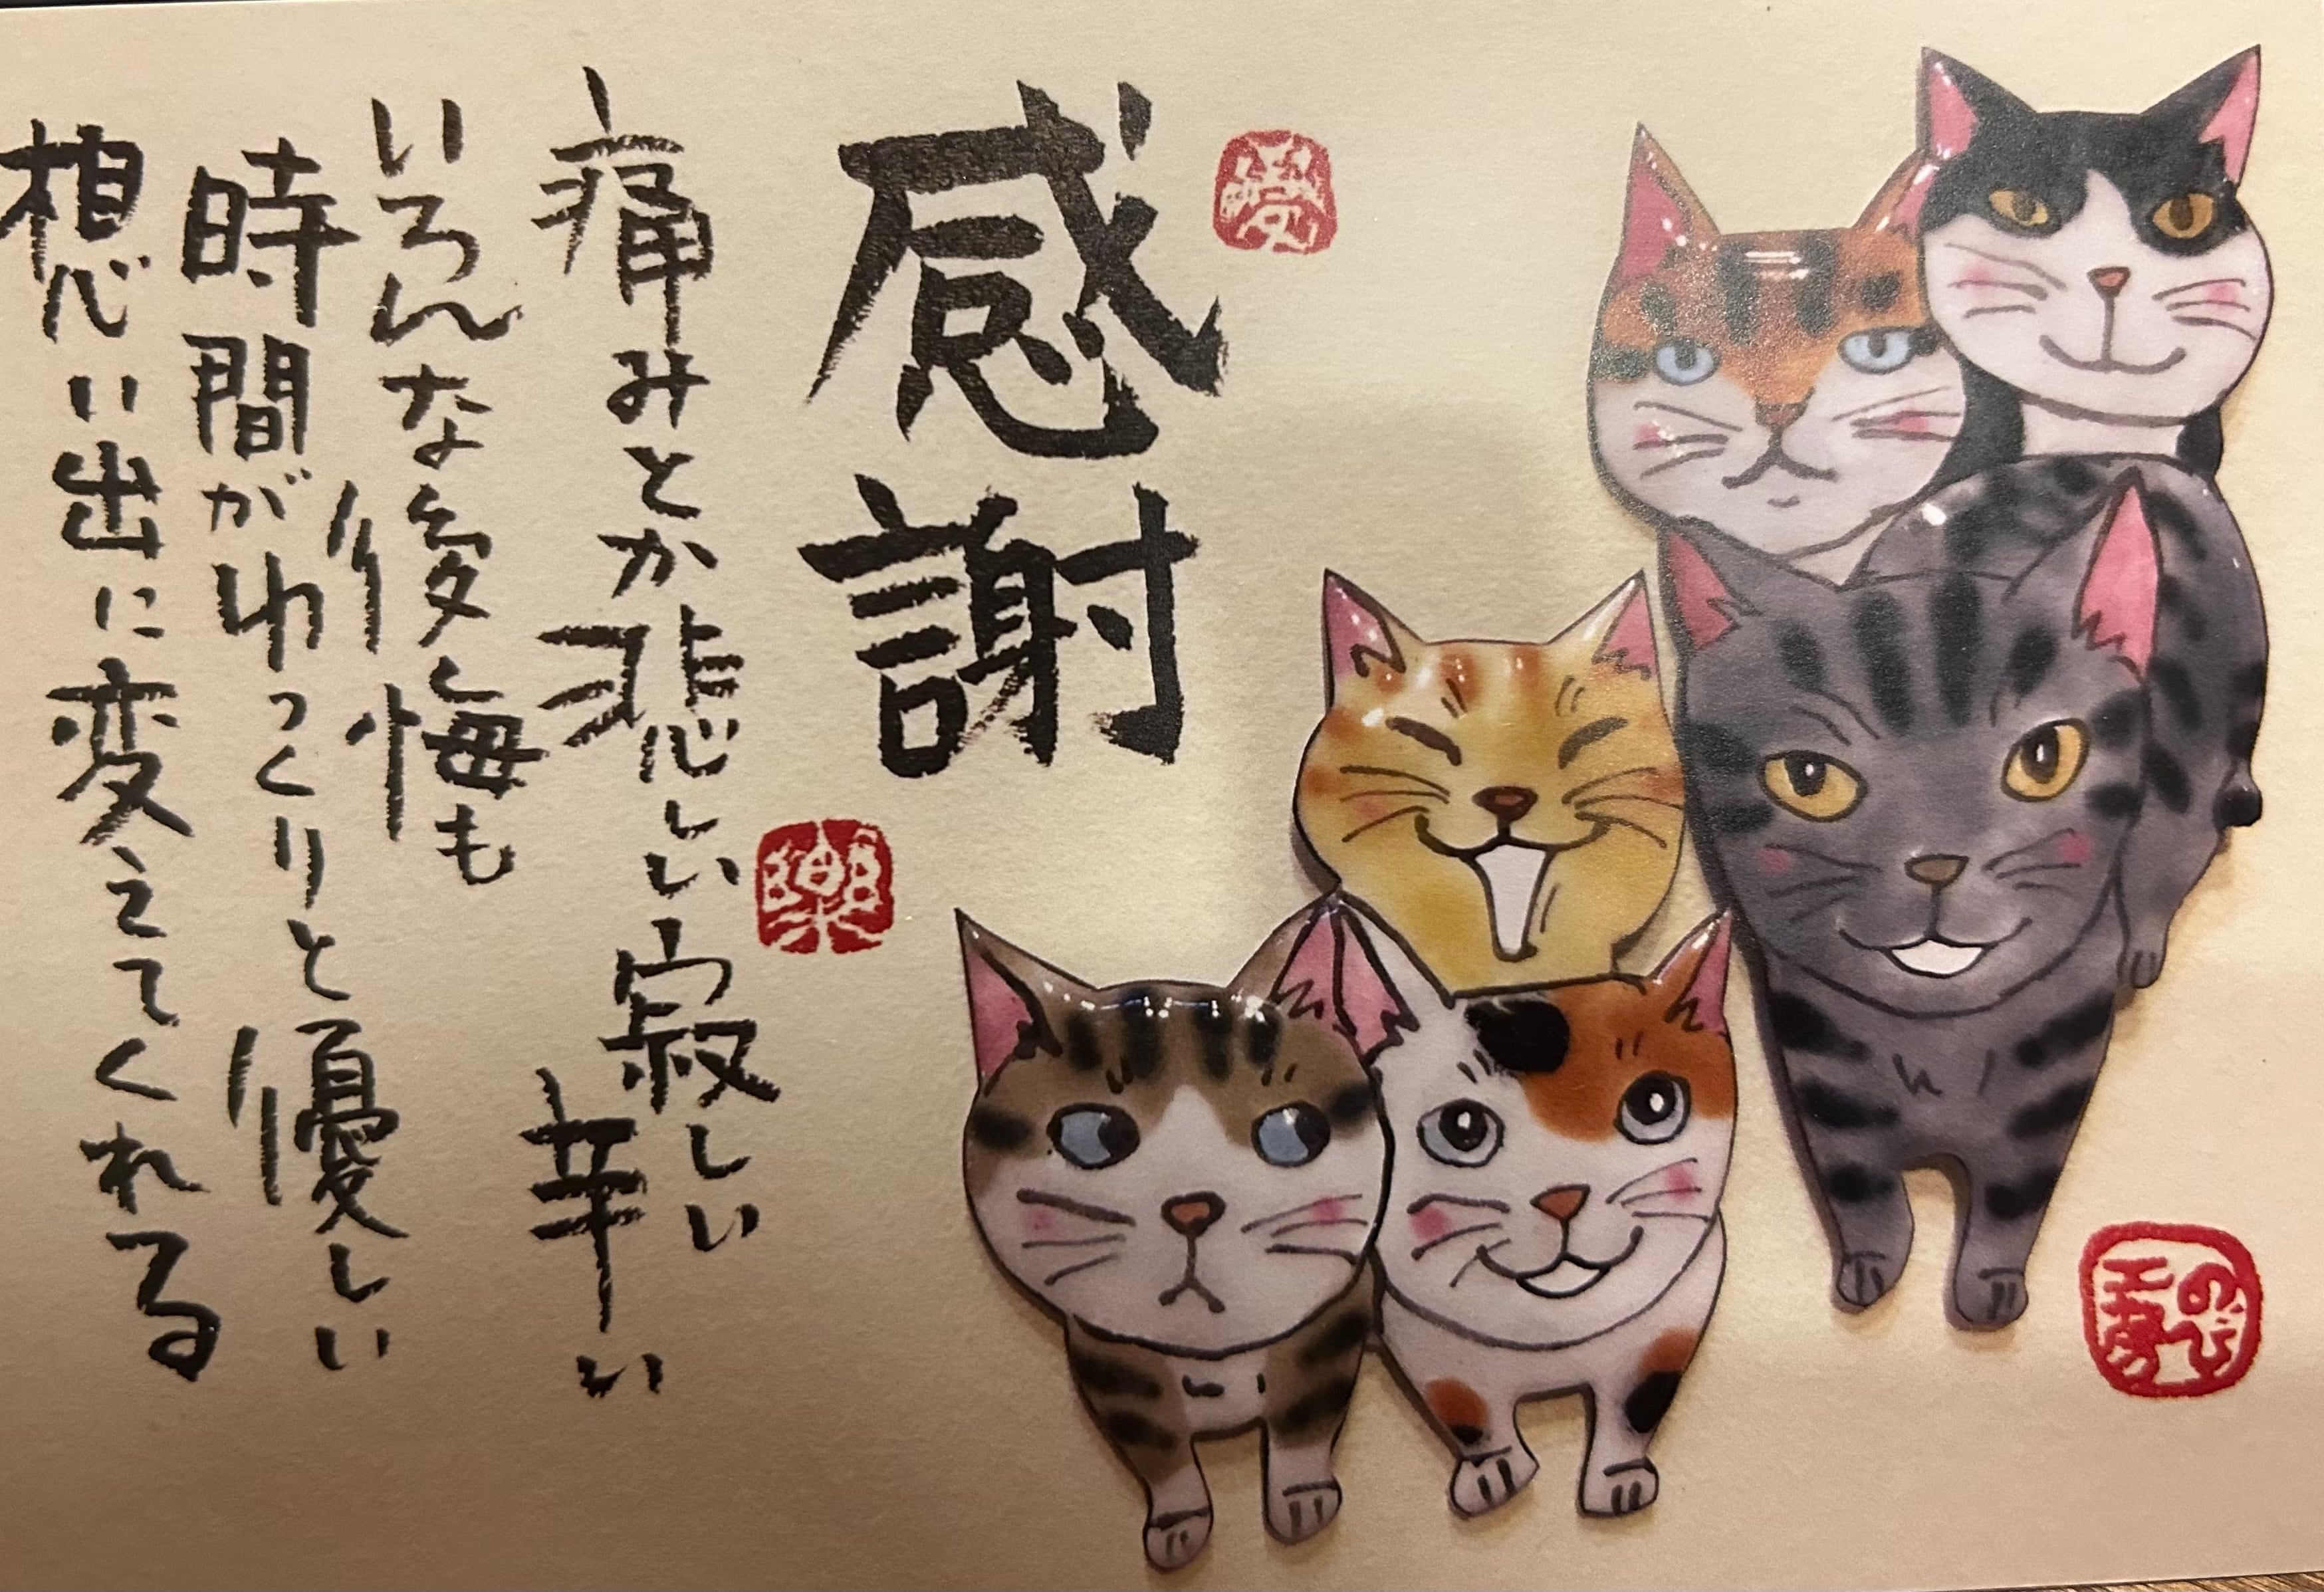 感謝
痛みとか悲しい寂しい辛い
いろんな後悔も
時間がゆっくりと優しい
想い出に変えてくれる
樂
のび工房